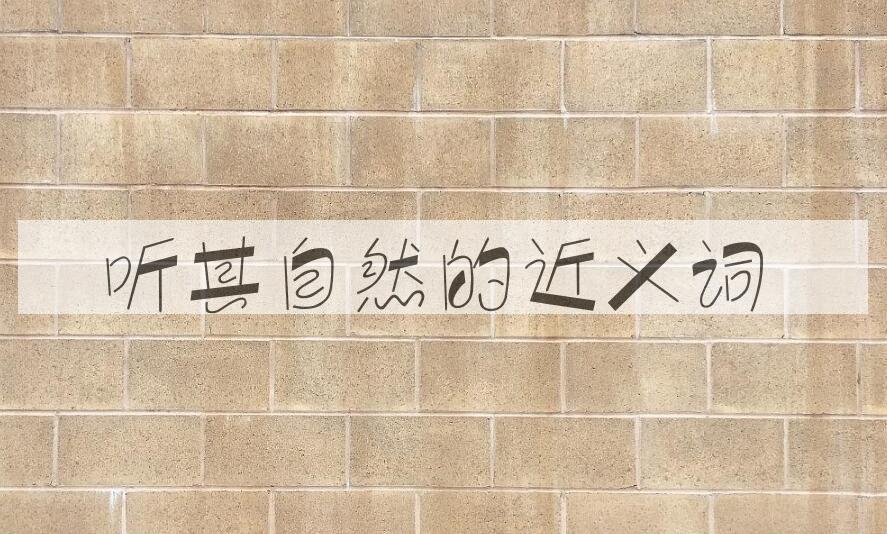 听其自然的近义词